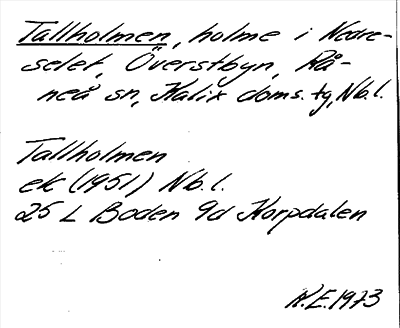 Tallholmen, holme i Nedre-
selet, Överstbyn, Rå-
neå sn, Kalix doms. tg, Nb.l.
Tallholmen
ek (1951) Nb.l.
25 L Boden 9d Korpdalen
N.E. 1973